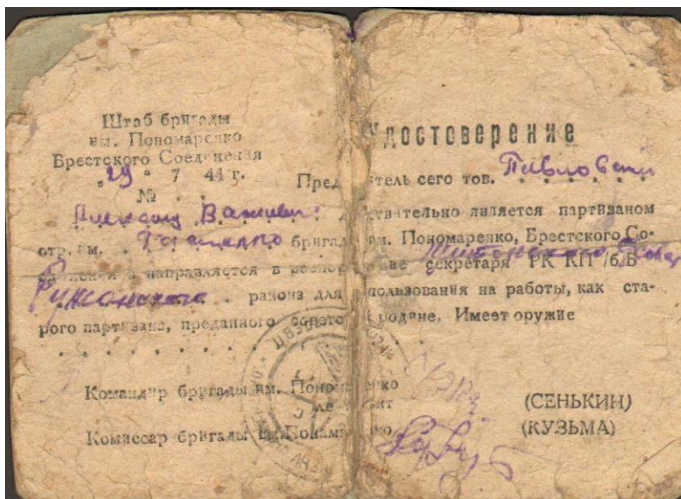 Штаб бригады
им. Пономаренко
Брестского Соединения
„29“ 7 44 г.
№
Удостоверение
Пред итель сего тов.
Александ действительно является партизаном
отр. им. бригады им. Пономаренко, Брестского Со-
единения и направляется в распор ние секретаря РК КП/б/Б
Ружанского района для использования на работы, как ста-
рого партизана, преданного советской родине. Имеет оружие
Командир бригады им. Пономаренко
(СЕНЬКИН)
Комиссар бригады им. Пономаренко
(КУЗЬМА)